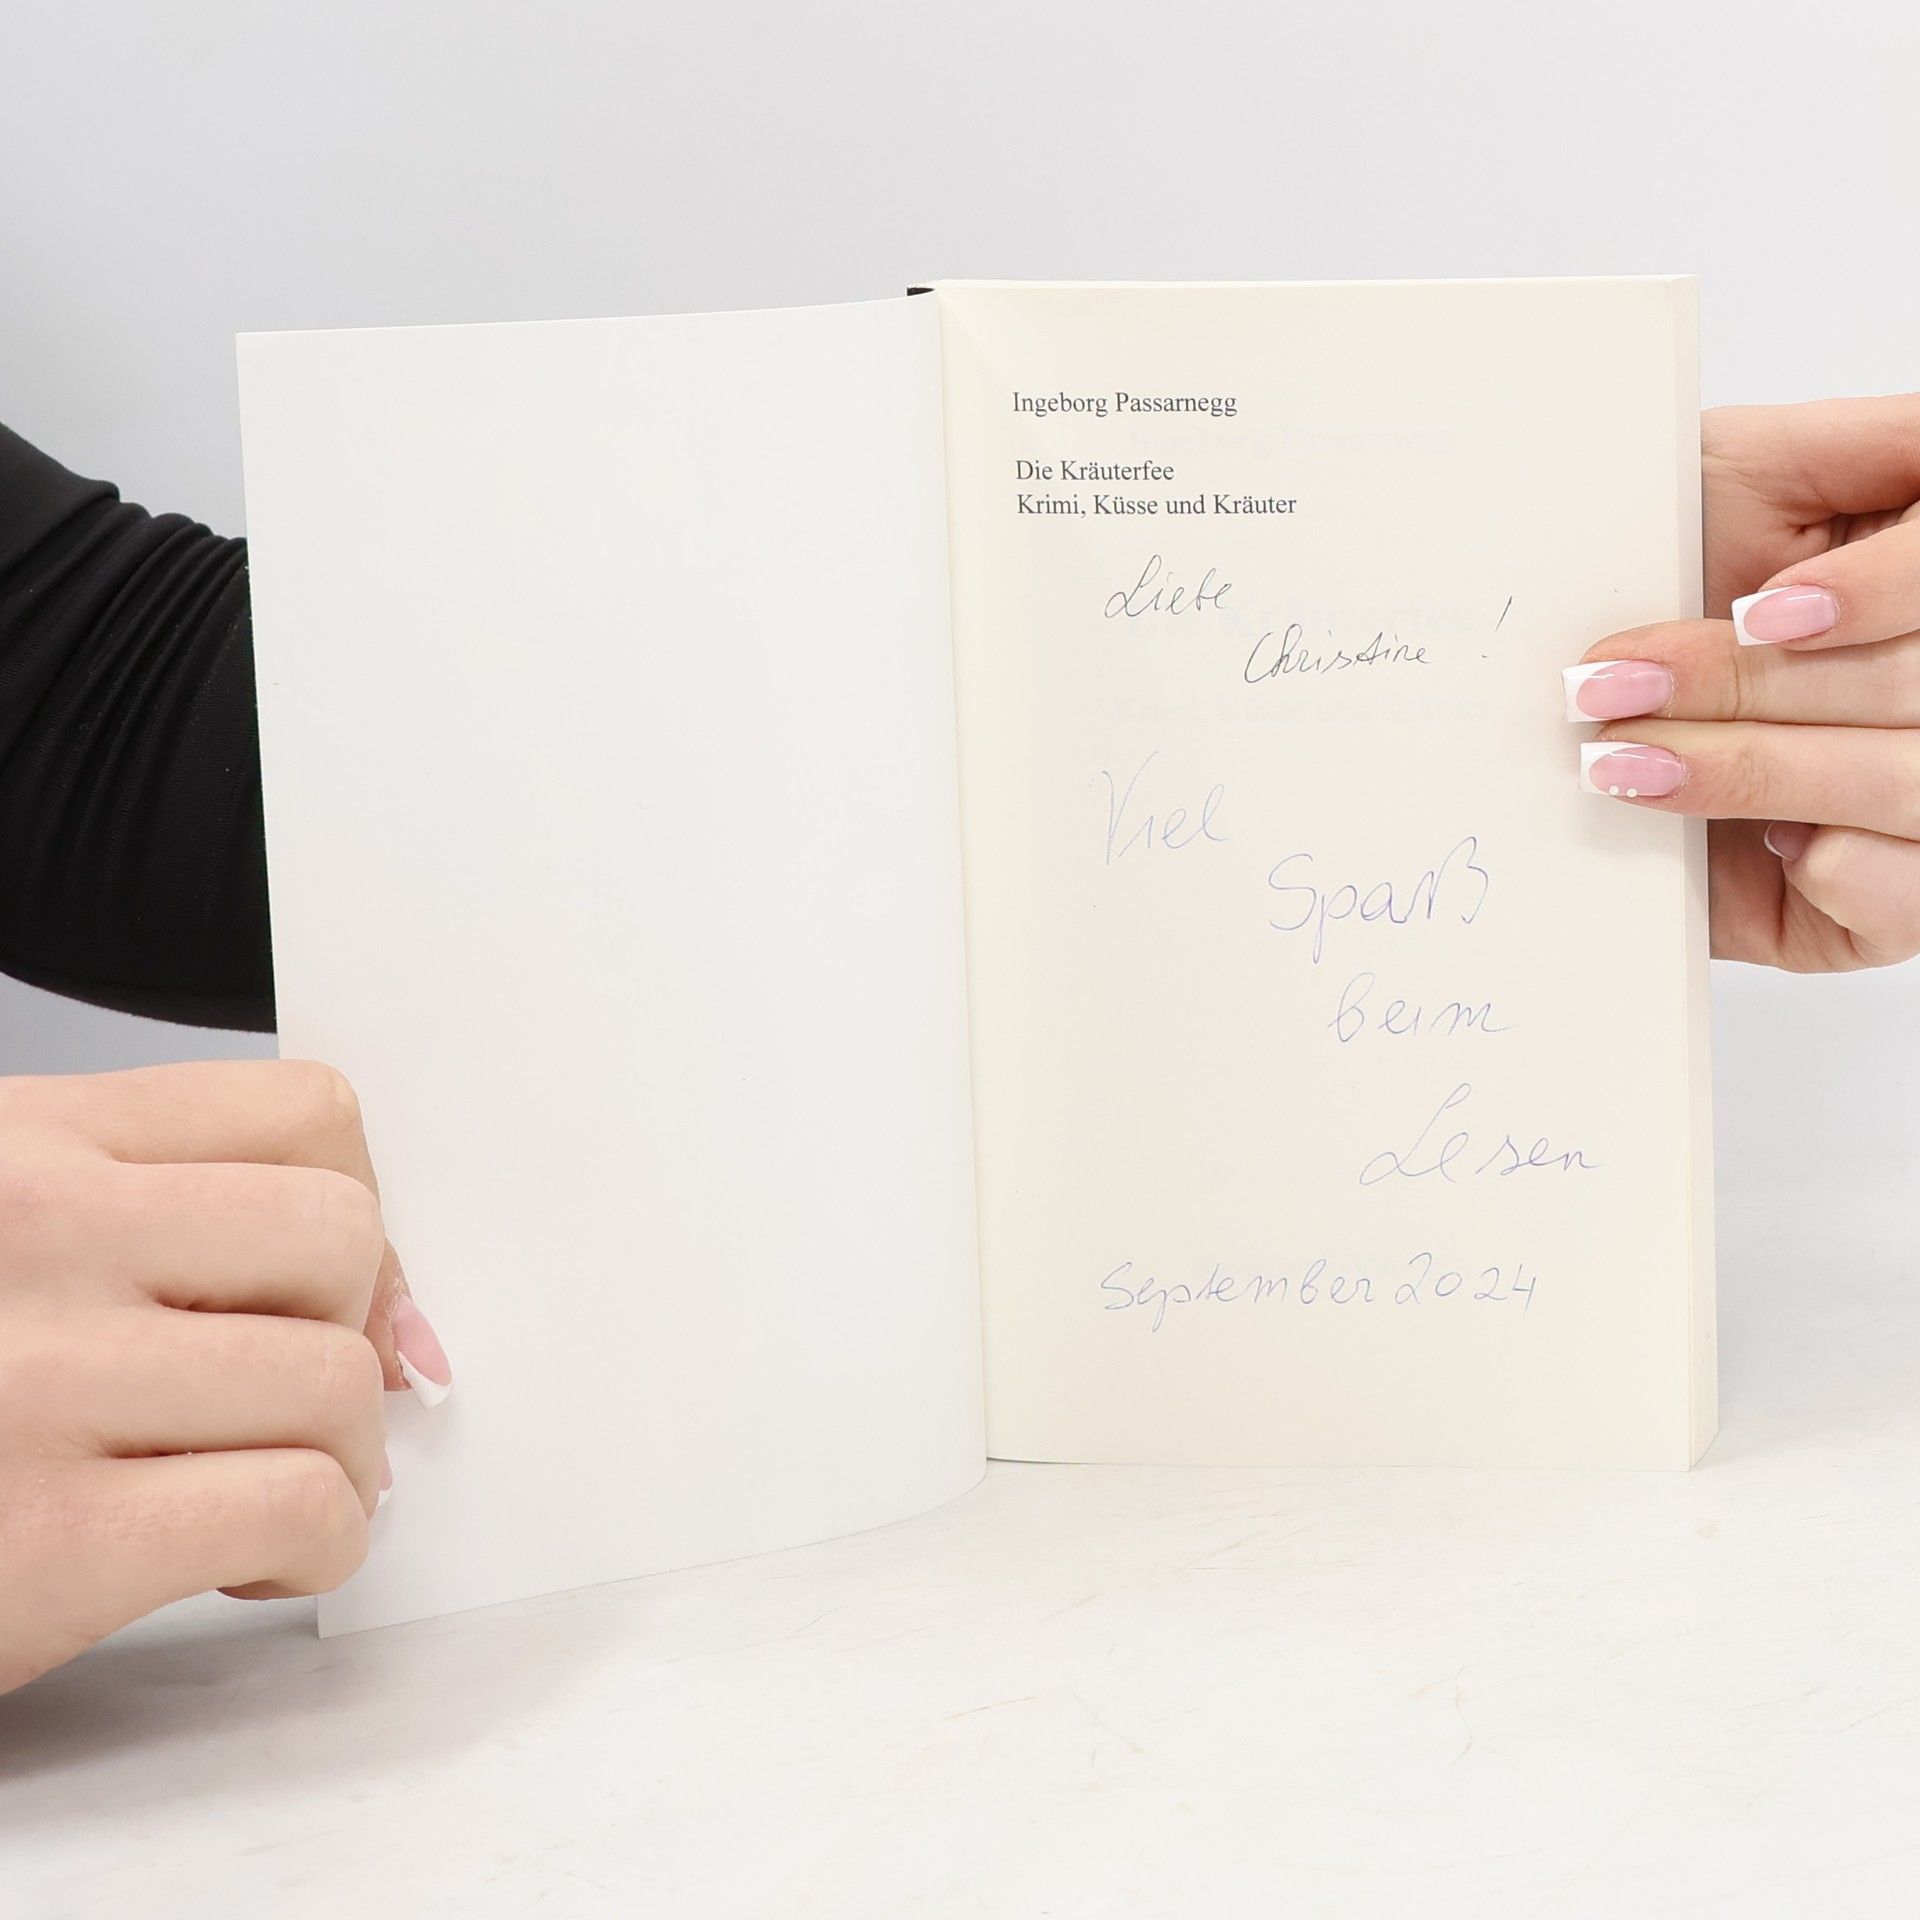 Ingeborg Passarnegg
Die Kräuterfee
Krimi, Küsse und Kräuter
Liebe
Christine !
Viel
Spaß
beim
Lesen
September 2024